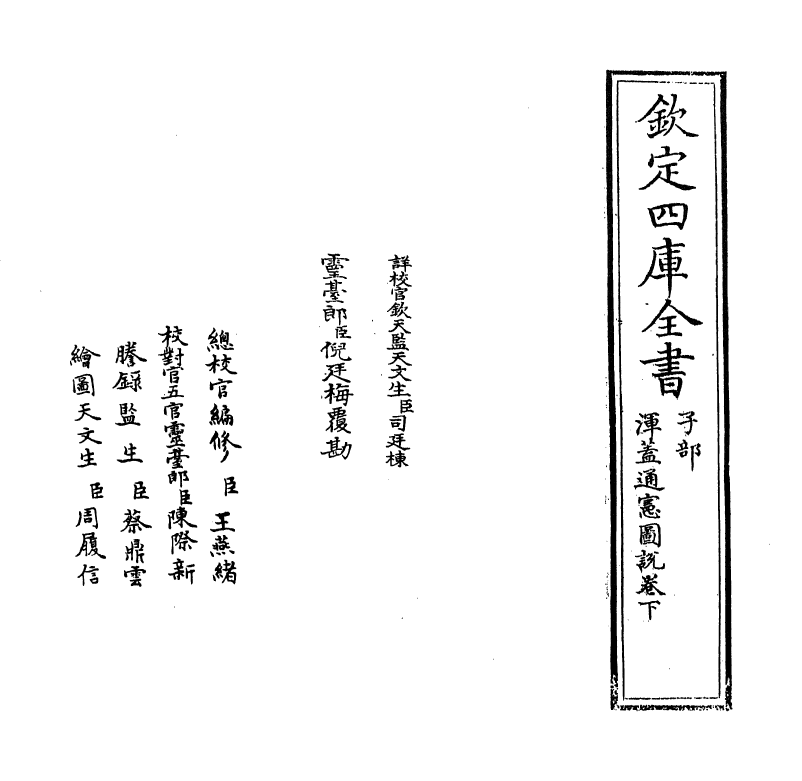 欽定四庫全書
子部
渾蓋通憲圖說卷下
詳校官欽天監天文生臣司廷棟
靈臺郎臣倪廷梅覆勘
總校官編修臣王燕緒
校對官五官靈臺郎臣陳際新
謄錄監生臣蔡鼎雲
繪圖天文生臣周履信